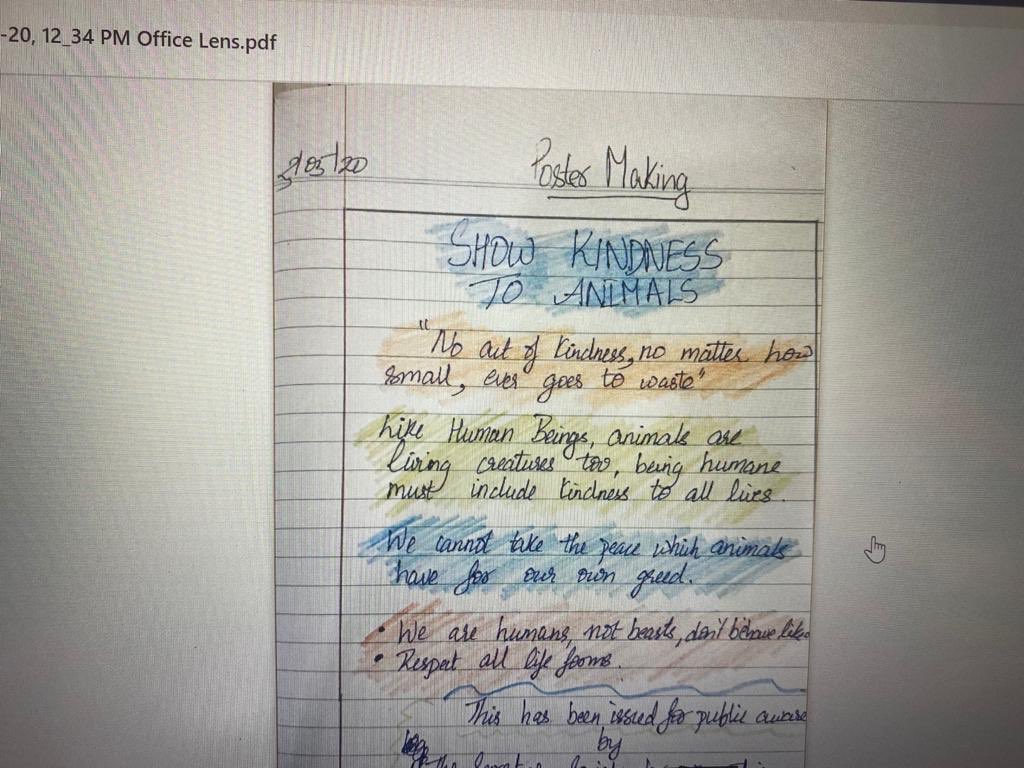 -20, 12_34 PM Office Lens.pdf
/05/20
Poster Making
SHOW KINDNESS
TO ANIMALS
"No act of kindness, no matter how
small, ever goes to waste"
Like Human Beings, animals are
living creatures too, being humane
must include kindness to all lives.
We cannot take the peace which animals
have for our own greed.
• We are humans, not beasts, don't behave like
• Respect all life forms.
This has been issued for public aware
by
the